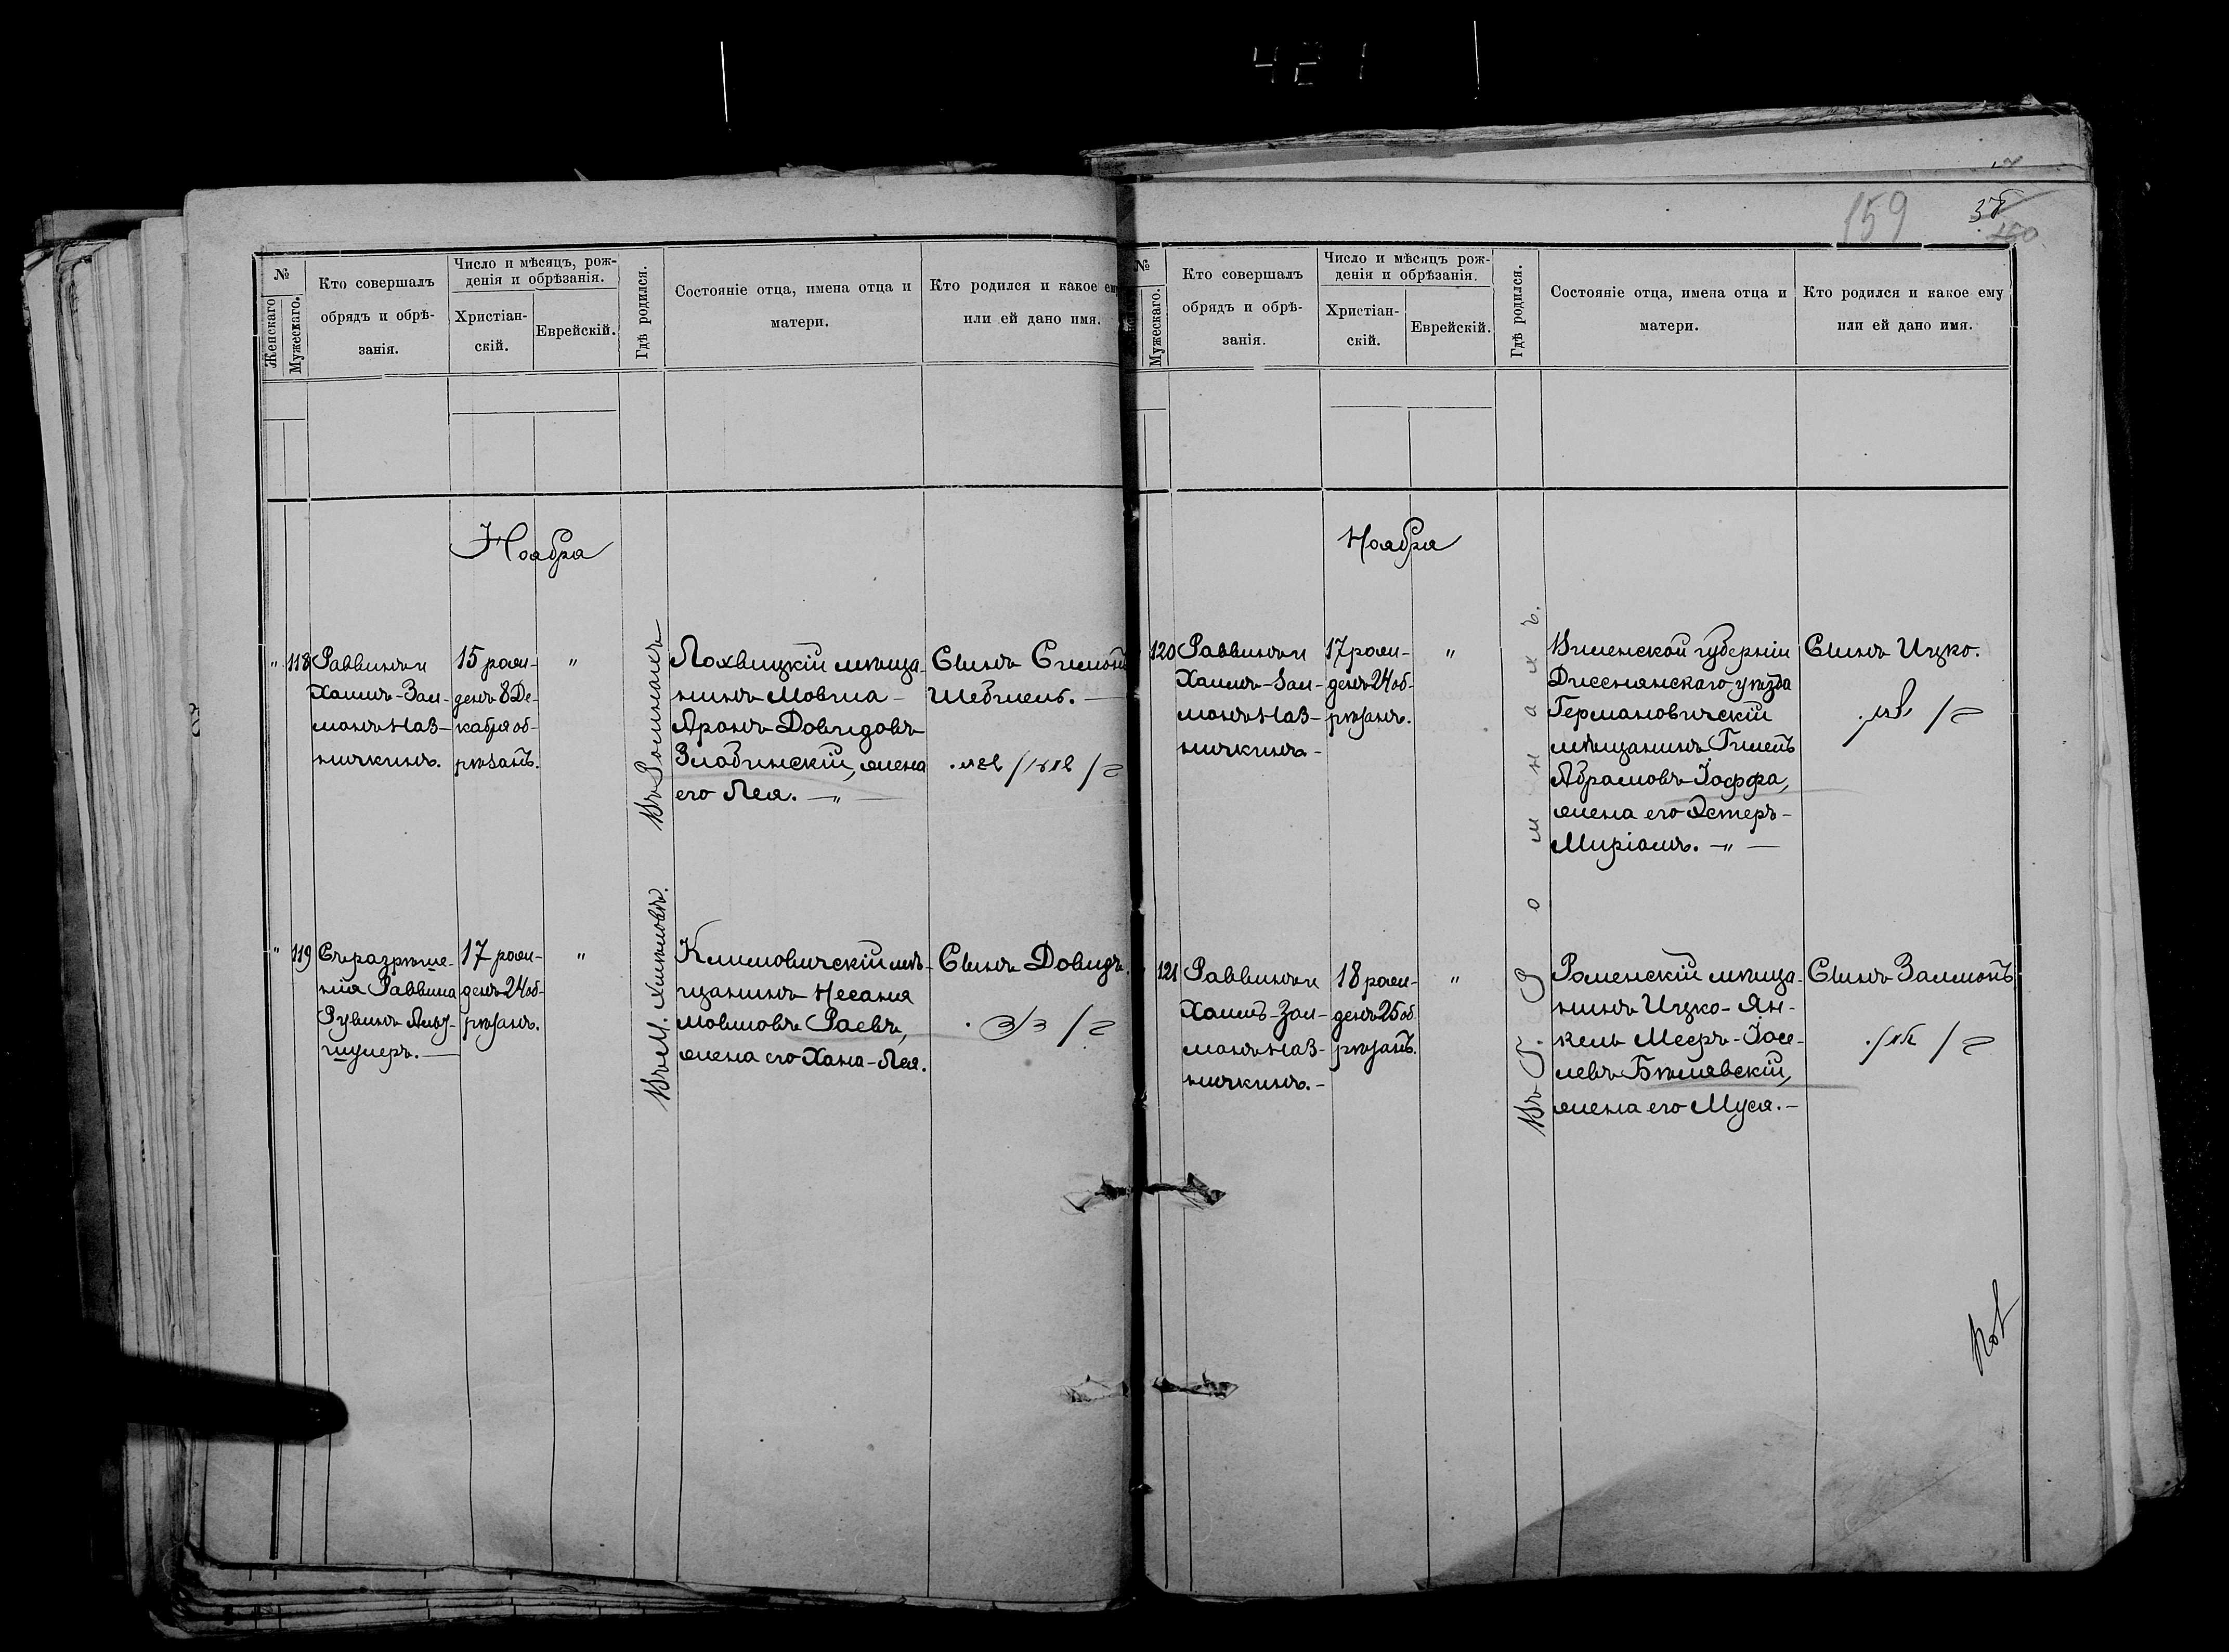 421
159
38
№
Женскаго
Мужескаго.
Кто совершалъ
обрядъ и обрѣ-
занія.
Число и мѣсяцъ, рож-
денія и обрѣзанія.
Христіан-
скій.
Еврейскій.
Гдѣ родился.
Состояніе отца, имена отца и
матери.
Кто родился и какое ему
или ей дано имя.
Ноября
"
118
Раввинъ и
Хаимъ-Зал-
манъ Наз-
ничкинъ.
15 рож-
денъ 8 Де-
кабря об-
рѣзанъ.
"
Въ Роменахъ
Лохвицкій мѣща-
нинъ Мовша-
Аронъ Довидовъ
Злобинскій, жена
его Лея. — " —
Сынъ Симонъ
Шебшель. —
בן / שמעון / שעפסל.
"
119
Съ разрѣше-
нія Раввина
Рувинъ
шулеръ. —
17 рож-
денъ 24 об-
рѣзанъ.
"
Въ М.
Климовичскій мѣ-
щанинъ Несаня
Мовшовъ Раевъ,
жена его Хана-Лея.
Сынъ Довидъ.
בן / דוד.
№
Мужескаго.
Кто совершалъ
обрядъ и обрѣ-
занія.
Число и мѣсяцъ рож-
денія и обрѣзанія.
Христіан-
скій.
Еврейскій.
Гдѣ родился.
Состояніе отца, имена отца и
матери.
Кто родился и какое ему
или ей дано имя.
Ноября
120
Раввинъ и
Хаимъ-Зал-
манъ Наз-
ничкинъ-
17 рож-
денъ 24 об-
рѣзанъ.
"
Въ Г. Роменахъ.
Виленской губерніи
Диснянскаго уѣзда
Германовичскій
мѣщанинъ Гилель
Абрамовъ Іоффа,
жена его Эстеръ-
Миріамъ. — " —
Сынъ Ицко.
בן /
121
Раввинъ и
Хаимъ-Зал-
манъ Наз-
ничкинъ. -
18 рож-
денъ 25 об-
рѣзанъ.
"
Роменскій мѣща-
нинъ Ицко-Ян-
кель Мееръ-Іосе-
левъ Бѣлявскій,
жена его Муся. -
Сынъ Залманъ
בן /